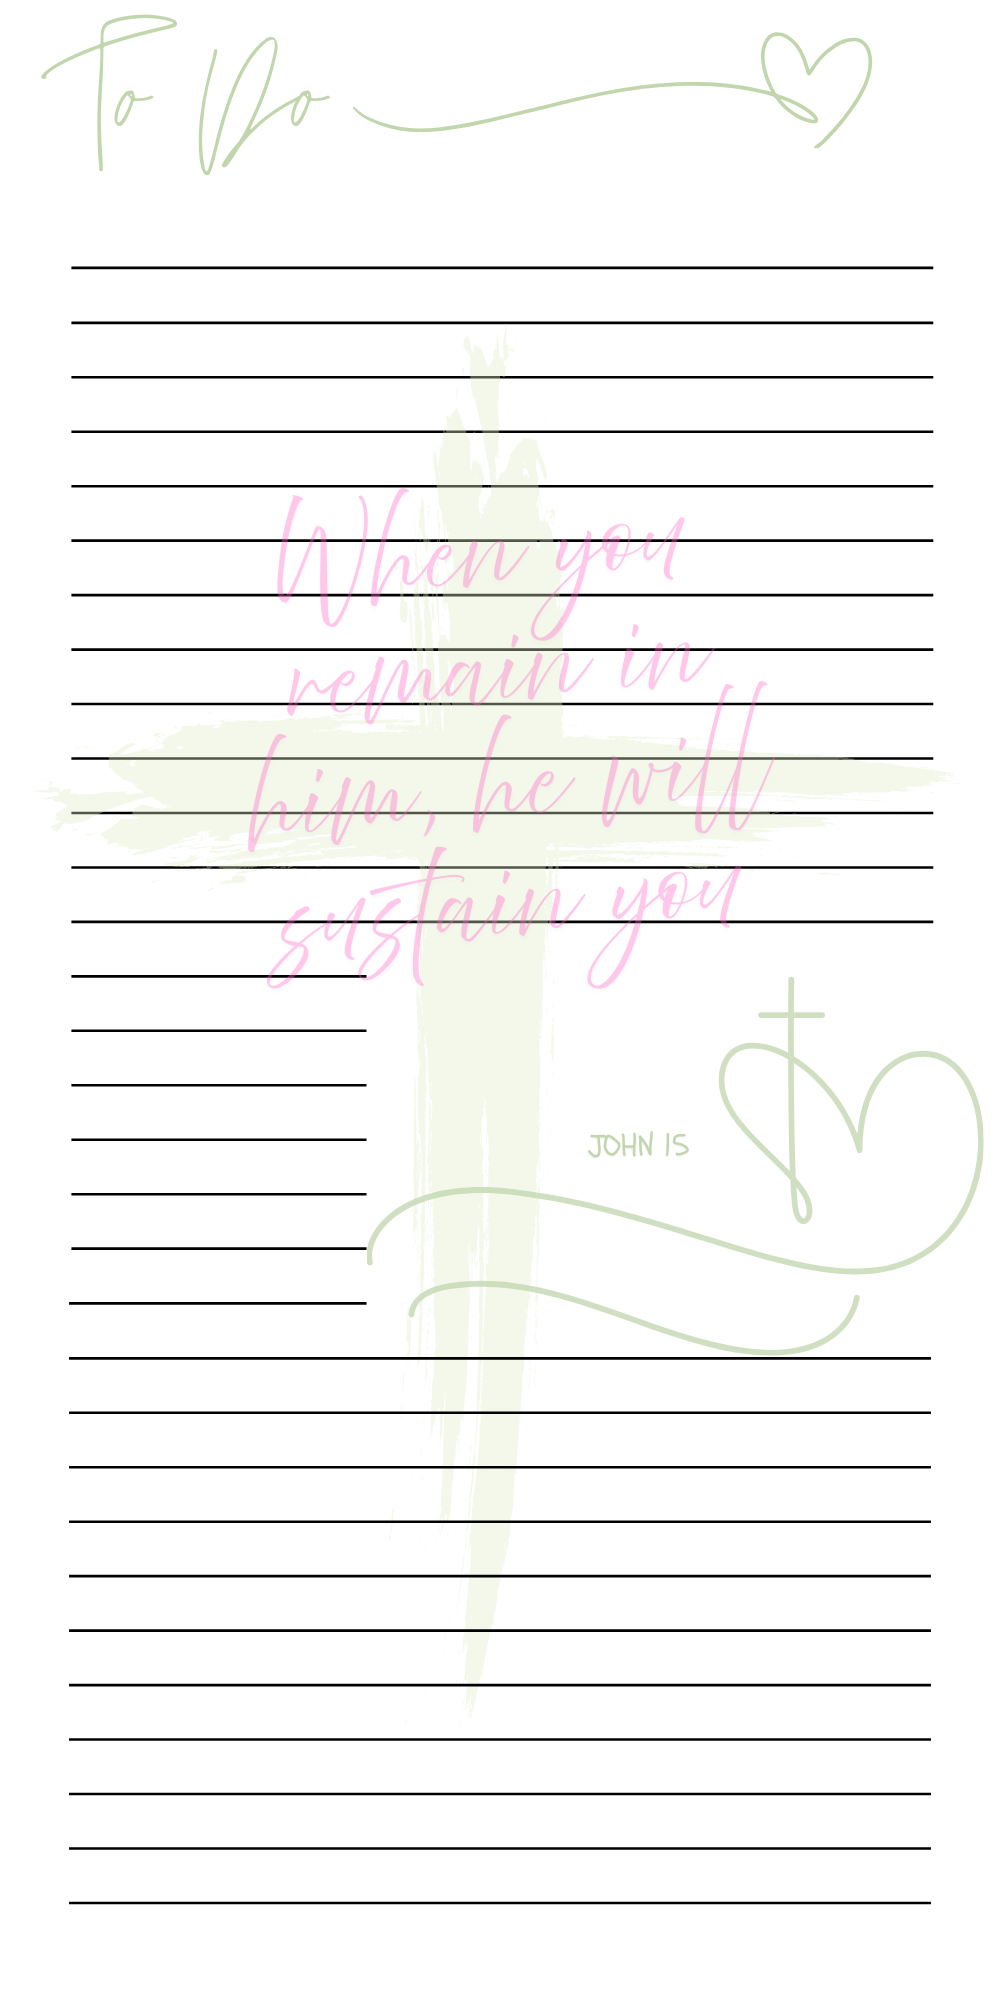 To Do
When you
remain in
him, he will
sustain you
JOHN 15